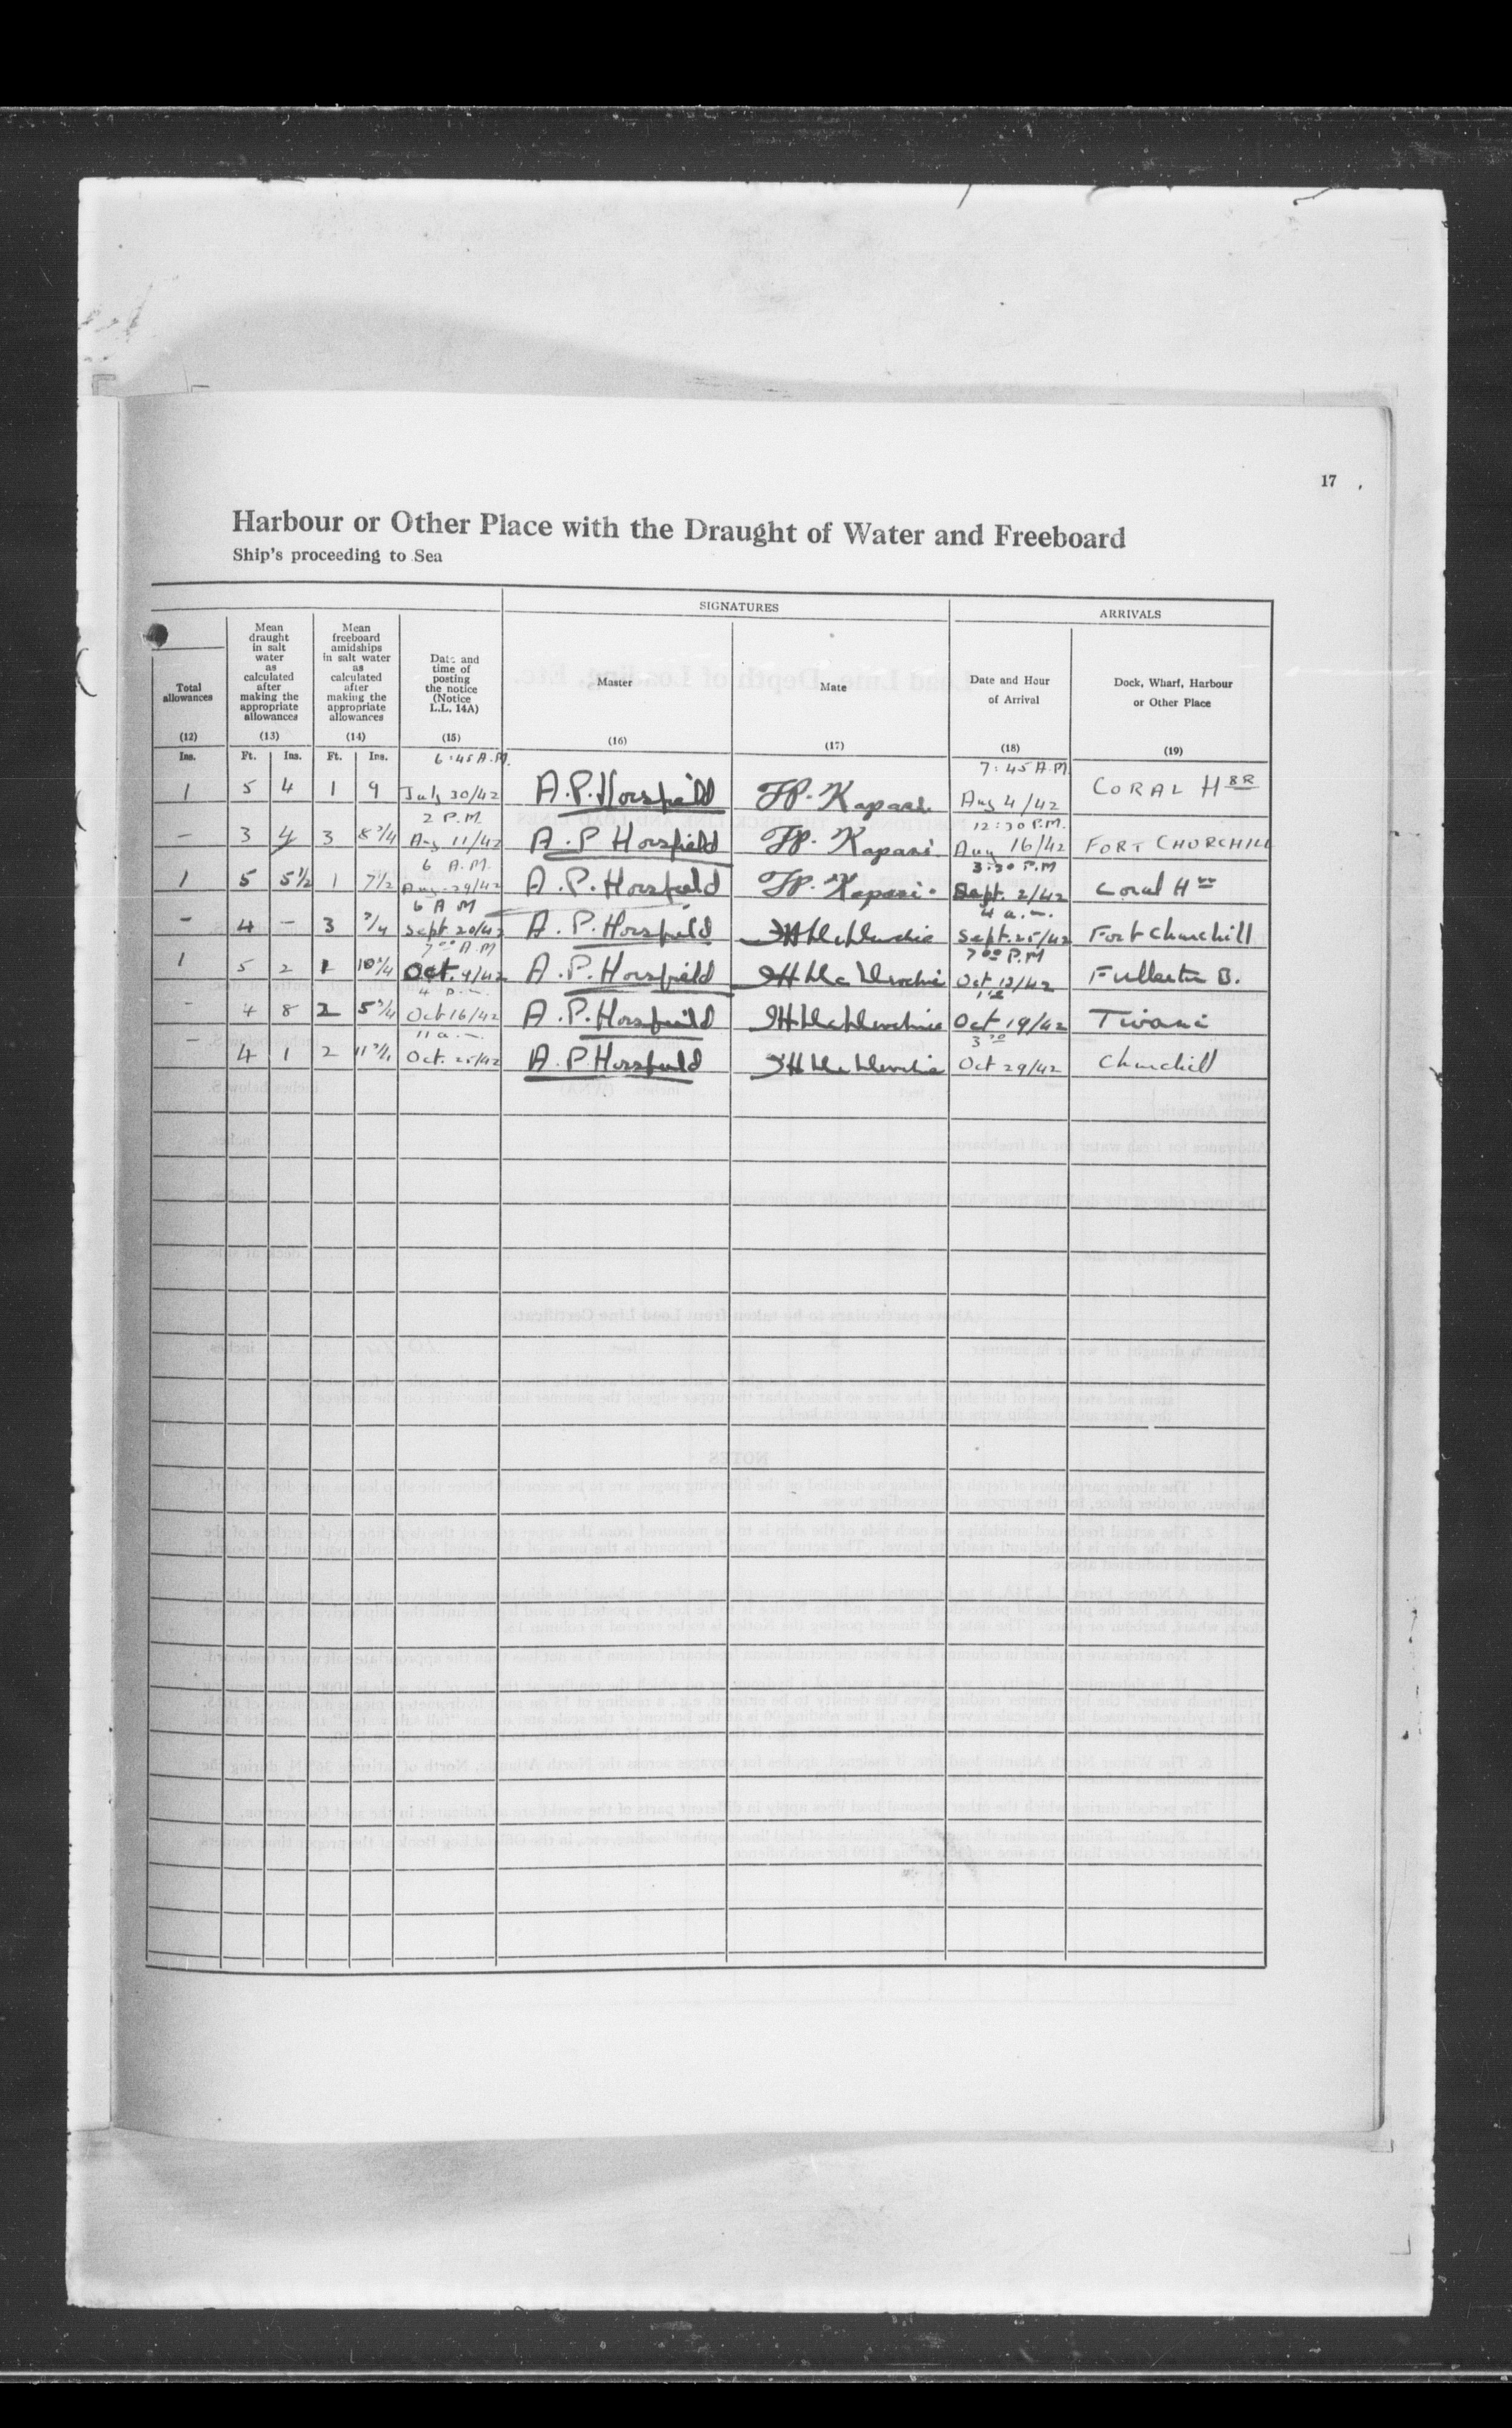 17
Harbour or Other Place with the Draught of Water and Freeboard
Ship's proceeding to Sea
SIGNATURES ARRIVALS
Total allowances Mean draught in salt water as calculated after making the appropriate allowances Mean freeboard amidships in salt water as calculated after making the appropriate allowances Date and time of posting the notice (Notice L.L. 14A) Master Mate Date and Hour of Arrival Dock, Wharf, Harbour or Other Place
(12) (13) (14) (15) (16) (17) (18) (19)
Ins. Ft. Ins. Ft. Ins.
6:45 A.M. 7:45 A.M.
1 5 4 1 9 July 30/42 A.P. Horsfield Aug 4/42 CORAL HBR
2 P.M. 12:30 P.M.
- 3 4 3 8 3/4 Aug 11/42 A.P Horsfield Aug 16/42 FORT CHURCHILL
6 A.M. 3:30 P.M
1 5 5 1/2 1 7 1/2 Aug. 29/42 A.P. Horsfield Sept. 2/42 Coral Hr
6 A M 4 a.m.
- 4 - 3 3/4 Sept 20/42 A.P. Horsfield Sept. 25/42 Fort Churchill
7 00 A.M 7 00 P.M
1 5 2 1 10 3/4 Oct. 9/42 A.P. Horsfield Fullerton B.
4 p.m.
- 4 8 2 5 3/4 Oct 16/42 A.P. Horsfield Oct 19/42
11 a.m. 3 30
- 4 1 2 11 3/4 Oct. 25/42 A.P. Horsfield Oct 29/42 Churchill